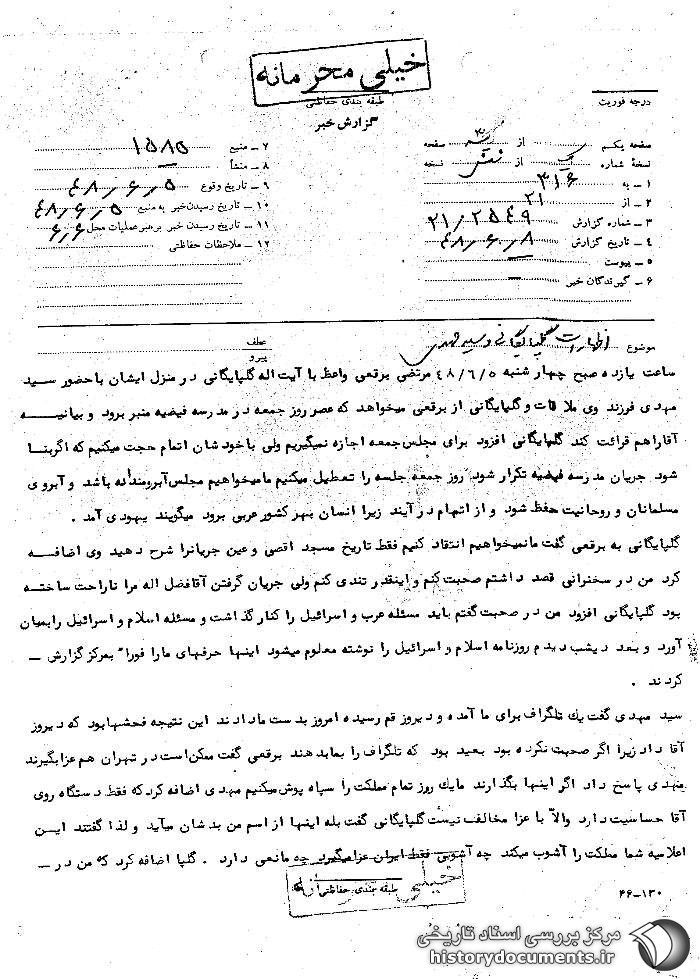 خیلی محرمانه
طبقه بندی حفاظتی
گزارش خبر
درجه فوریت
صفحه یکم از صفحه
نسخهٔ شماره از نسخه
۱ ـ به ۳۱۶
۲ ـ از ۲۱
۳ ـ شماره گزارش ۲۱/۲۵۴۹
۴ ـ تاریخ گزارش ۴۸/۶/۸
۵ ـ پیوست
۶ ـ گیرندگان خبر
۷ ـ منبع ۱۵۸۵
۸ ـ منشأ
۹ ـ تاریخ وقوع ۴۸/۶/۵
۱۰ ـ تاریخ رسیدن خبر به منبع ۴۸/۶/۵
۱۱ ـ تاریخ رسیدن خبر برهبر عملیات محل ۶/۶
۱۲ ـ ملاحظات حفاظتی
موضوع اظهارات گلپایگانی و سید مهدی
عطف
پیرو
ساعت یازده صبح چهار شنبه ۴۸/۶/۵ مرتضی برقعی واعظ با آیت اله گلپایگانی در منزل ایشان با حضور سید
مهدی فرزند وی ملاقات و گلپایگانی از برقعی میخواهد که عصر روز جمعه در مدرسه فیضیه منبر برود و بیانیه
آقا را هم قرائت کند گلپایگانی افزود برای مجلس جمعه اجازه نمیگیریم ولی با خودشان اتمام حجت میکنیم که اگر بنا
شود جریان مدرسه فیضیه تکرار شود روز جمعه جلسه را تعطیل میکنیم ما میخواهیم مجلس آبرومندانه باشد و آبروی
مسلمانان و روحانیت حفظ شود و از اتهام در آیند زیرا انسان بهر کشور عربی برود میگویند یهودی آمد .
گلپایگانی به برقعی گفت ما نمیخواهیم انتقاد کنیم فقط تاریخ مسجد اقصی و عین جریانرا شرح دهید وی اضافه
کرد من در سخنرانی قصد داشتم صحبت کنم و اینقدر تندی کنم ولی جریان گرفتن آقا فضل اله مرا ناراحت ساخته
بود گلپایگانی افزود من در صحبت گفتم باید مسئله عرب و اسرائیل را کنار گذاشت و مسئله اسلام و اسرائیل را بمیان
آورد و بعد دیشب دیدم روزنامه اسلام و اسرائیل را نوشته معلوم میشود اینها حرفهای ما را فوراً بمرکز گزارش ـ
کردند .
سید مهدی گفت یک تلگراف برای ما آمده و دیروز قم رسیده امروز بدست ما دادند این نتیجه فحشها بود که دیروز
آقا داد زیرا اگر صحبت نکرده بود بعید بود که تلگراف را بما بدهند برقعی گفت ممکن است در تهران هم عزا بگیرند
مهدی پاسخ داد اگر اینها بگذارند ما یک روز تمام مملکت را سیاه پوش میکنیم مهدی اضافه کرد که فقط دستگاه روی
آقا حساسیت دارد والا با عزا مخالف نیست گلپایگانی گفت بله اینها از اسم من بدشان میآید و لذا گفتند این
اعلامیه شما مملکت را آشوب میکند چه آشوبی فقط ایران عزا میگیرد چه مانعی دارد . گلپا اضافه کرد که من در ـ
خیلی
طبقه بندی حفاظتی
۴۶-۱۳۰
مرکز بررسی اسناد تاریخی
historydocuments.ir